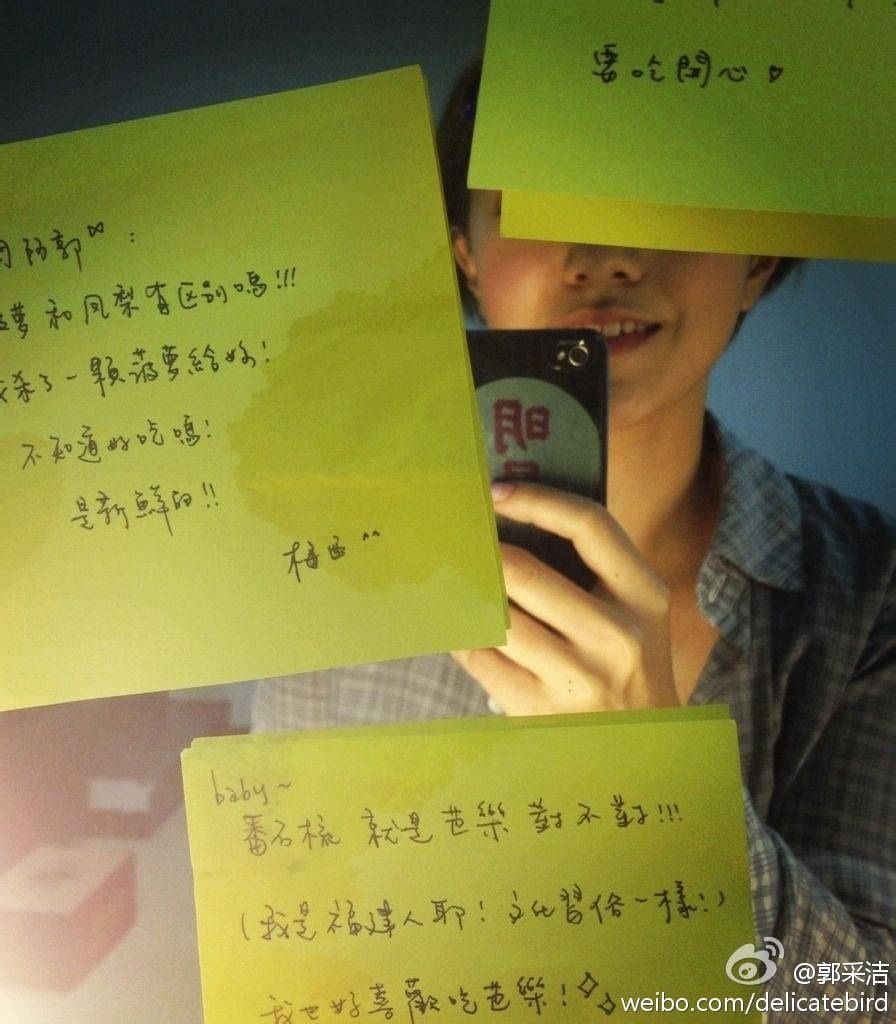 要吃開心♡
阿郭:
萝和凤梨有区别嗎!!!
杀了一顆菠萝給妳!
不知道好吃嗎!
是新鮮的!!
^^
明
baby~
番石榴 就是芭樂 對不對!!!
(我是福建人耶!文化習俗一樣!)
我也好喜歡吃芭樂!
@郭采洁
weibo.com/delicatebird